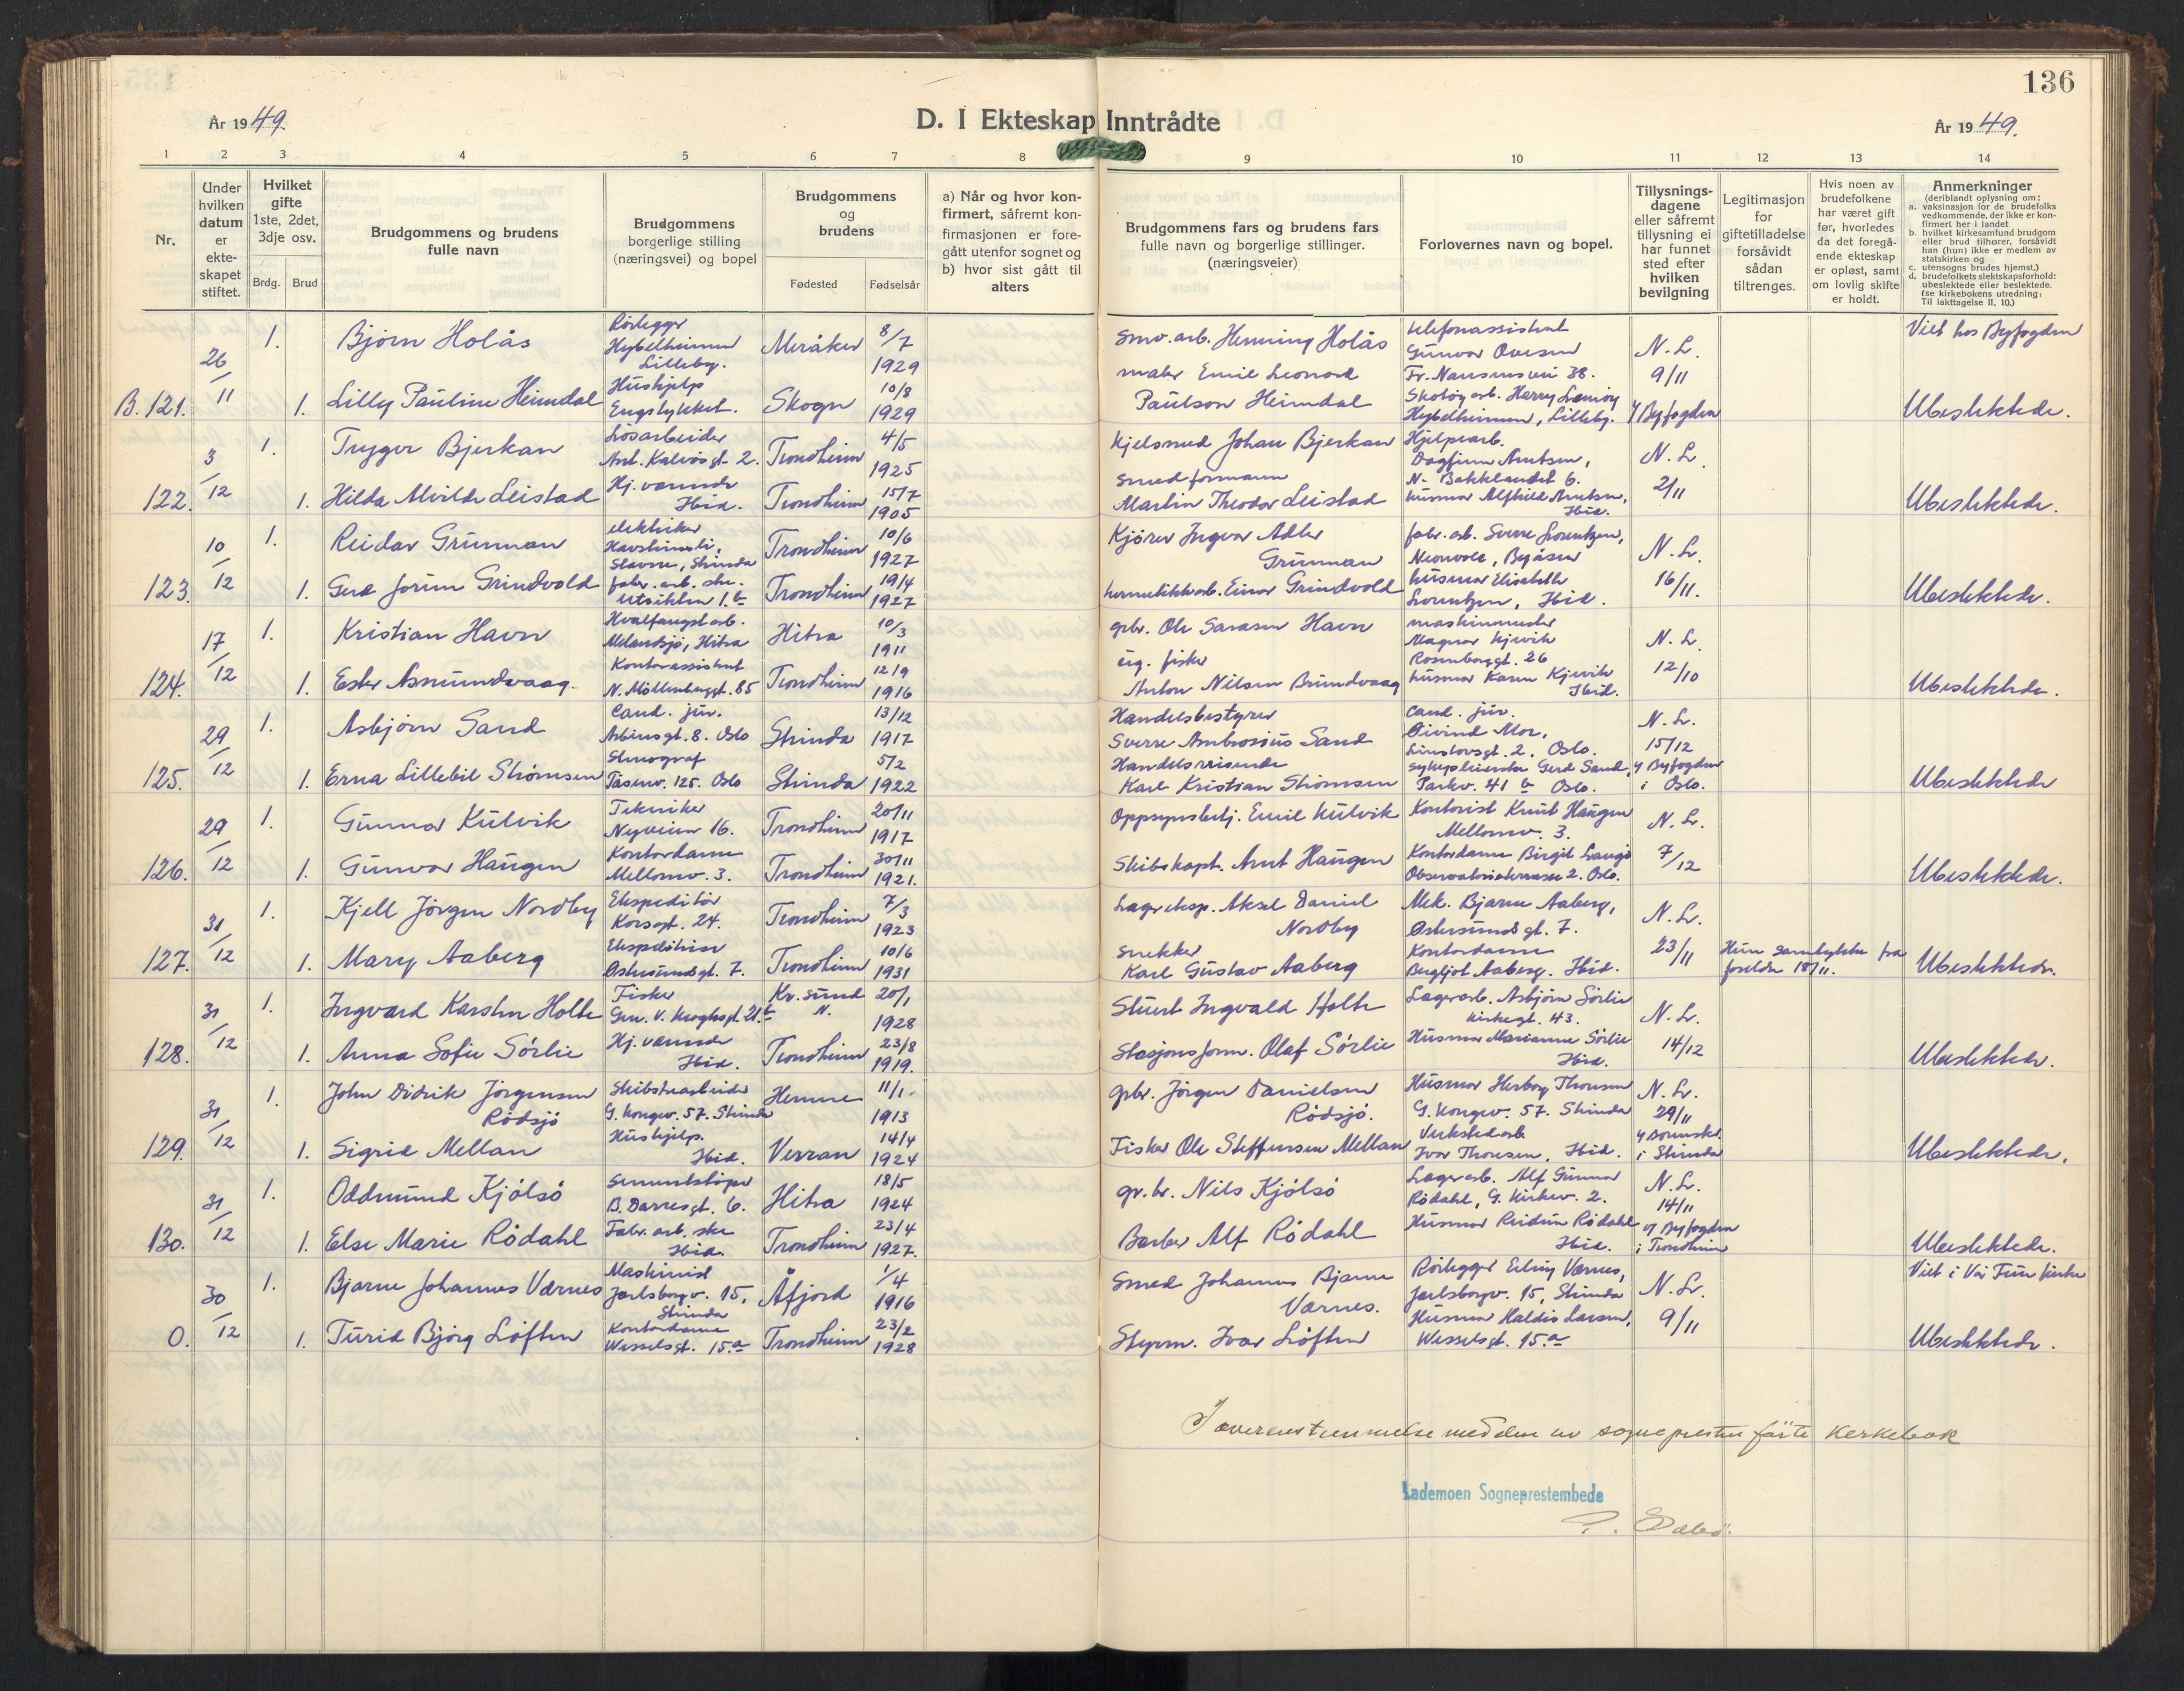 136
År 1949.
D. I Ekteskap Inntrådte
År 1949.
1 2 3 4 5 6 7 8 9 10 11 12 13 14
Nr.
Under hvilken datum er ekteskapet stiftet.
Hvilket gifte 1ste, 2det, 3dje osv.
Brdg. Brud
Brudgommens og brudens fulle navn
Brudgommens borgerlige stilling (næringsvei) og bopel
Brudgommens og brudens
Fødested Fødselsår
a) Når og hvor konfirmert, såfremt konfirmasjonen er foregått utenfor sognet og b) hvor sist gått til alters
Brudgommens fars og brudens fars fulle navn og borgerlige stillinger. (næringsveier)
Forlovernes navn og bopel.
Tillysningsdagene eller såfremt tillysning ei har funnet sted efter hvilken bevilgning
Legitimasjon for giftetilladelse forsåvidt sådan tiltrenges.
Hvis noen av brudefolkene har været gift før, hvorledes da det foregående ekteskap er opløst, samt om lovlig skifte er holdt.
Anmerkninger
(deriblandt oplysning om:
a. vaksinasjon for de brudefolks vedkommende, der ikke er konfirmert her i landet
b. hvilket kirkesamfund brudgom eller brud tilhører, forsåvidt han (hun) ikke er medlem av statskirken og
c. utensogns brudes hjemst.)
d. brudefolkets slektskapsforhold: ubeslektede eller beslektede.
(se kirkebokens utredning: Til Iakttagelse II, 10.)
B. 121. 26/11 1. Bjørn Holås Rørlegger Hybelheimen Lilleby. Meråker 8/7 1929 Smv. arb. Henning Holås telefonassistent Gunvor Ovesen Fr. Nansensvei 38. N. L. 9/11 Viet hos Byfogden
1. Lilly Pauline Heimdal Hushjelp Engstykket. Skogn 10/8 1929 maler Emil Leonard Paulson Heimdal Skotøyarb. Harry Hybelheimen, Lilleby. Byfogden Ubeslektede.
122. 3/12 1. Trygve Bjerkan Løsarbeider Ant. Kalvøsgt. 2. Trondheim 4/5 1925 Kjelsmed Johan Bjerkan Hjelpearb. Dagfinn Arntsen, N. Bakklandet 6. N. L. 2/11
1. Hilda Alvilde Leistad Hj. værende Ibid. Trondheim 15/7 1905 Smedformann Martin Theodor Leistad husmor Alfhild Arntsen, Ibid. Ubeslektede.
123. 10/12 1. Reidar Grünman elektriker Havsteinsli, Stavne, Strinda Trondheim 10/6 1927 Kjører Ingvar Adler Grünman fabr. arb. Sverre Lorentzen, Byåsen N. L. 16/11.
1. Gerd Jorun Grindvold fabr. arb. ske. Utsikten 1.b Trondheim 19/4 1927 hermetikkarb. Einar Grindvold husmor Elisabeth Lorentzen, Ibid. Ubeslektede.
124. 17/12 1. Kristian Havn Hvalfangstarb. Melandsjø, Hitra Hitra 10/3 1911 gbr. Ole Sarasen Havn maskinmester Magnar Kjervik Rosenborggt. 26 N. L. 12/10
1. Ester Asmundvaag. Kontorassistent N. Møllenberggt. 85 Trondheim 12/9 1916 ug. fisker Anton Nilsen Brundvaag husmor Karen Kjervik Ibid. Ubeslektede.
125. 29/12 1. Asbjørn Sand Cand. jur. Asbiensgt. 8. Oslo Strinda 13/12 1917 Handelsbestyrer Sverre Ambrosius Sand Cand. jur. Eivind Moe, Linstowsgt. 2. Oslo. N. L. 15/12
1. Erna Lillebil Strømsen Stenograf Tåsenv. 125. Oslo Strinda 5/2 1922 Handelsreisende Karl Kristian Strømsen sykepleierske Gerd Sand, Parkv. 41 b Oslo. Byfogden i Oslo. Ubeslektede
126. 29/12 1. Gunnar Kulvik Tekniker Nyveien 16. Trondheim 20/11 1917 Oppsynsbetj. Emil Kulvik Kontorist Knut Haugen Mellomv. 3. N. L. 7/12
1. Gunvor Haugen Kontordame Mellomv. 3. Trondheim 30/11 1921. Skibskapt. Arnt Haugen Kontordame Birgit Langø Observatorieterrasse 2. Oslo. Ubeslektede.
127. 31/12 1. Kjell Jørgen Nordby Ekspeditør Korsgt. 24. Trondheim 7/3 1923 Lagereksp. Aksel Daniel Nordby Mek. Bjarne Aaberg, Østersundsgt. 7. N. L. 23/11
1. Mary Aaberg Ekspeditrise Østersundsgt. 7. Trondheim 10/6 1931 Snekker Karl Gustav Aaberg Kontordame Bergljot Aaberg. Ibid. Hun samtykke fra foreldre 18/11. Ubeslektede.
128. 31/12 1. Ingvard Karsten Holte Fisker Gen. v. Kroghsgt. 21.b Kr. sund N. 20/1 1928 Stuert Ingvald Holte Lagerarb. Asbjørn Sørlie Kirkegt. 43. N. L. 14/12
1. Anna Sofie Sørlie Hj. værende Ibid. Trondheim 23/8 1919. Stasjonsform. Olaf Sørlie Husmor Marianne Sørlie Ibid. Ubeslektede.
129. 31/12 1. John Didrik Jørgensen Rødsjø Skibstrearbeider G. Kongev. 57. Strinda Hemne 11/1 1913 gbr. Jørgen Danielsen Rødsjø. Husmor Herborg Thoresen G. Kongev. 57. Strinda N. L. 29/11
1. Sigrid Mellan Hushjelp. Ibid. Verran 14/4 1924 Fisker Ole Steffensen Mellan Verkstedarb. Ivar Thoresen, Ibid. i Strinda Ubeslektede.
130. 31/12 1. Oddmund Kjølsø Sementstøper B. Darresgt. 6. Hitra 18/5 1924 gr. br. Nils Kjølsø Lagerarb. Alf Gunnar Rødahl, G. Kirkev. 2. N. L. 14/11
1. Else Marie Rødahl Fabr. arb. ske Ibid. Trondheim 23/4 1927. Barber Alf Rødahl Husmor Reidun Rødahl Ibid. v/ Byfogden i Trondheim Ubeslektede.
0. 30/12 1. Bjarne Johannes Værnes Maskinist Jarlsborgv. 15, Strinda Åfjord 1/4 1916 Smed Johannes Bjarne Værnes. Rørlegger Erling Værnes, Jarlsborgv. 15, Strinda N. L. 9/11 Viet i Vår Frue kirke
1. Turid Bjørg Løften Kontordame Wesselsgt. 15.a Trondheim 23/2 1928 Styrm. Ivar Løften Husmor Haldis Larsen, Wesselsgt. 15.a Ubeslektede.
I overenstemmelse med den av sogneprester førte Kerkebok
Lademoen Sogneprestembede